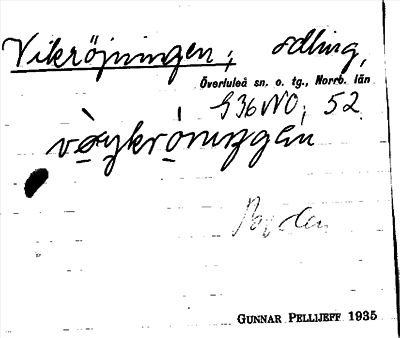 Vikröjningen, odling,
Överluleå sn. o. tg., Norrb. län
G36NO, 52
Boden
GUNNAR PELLIJEFF 1935